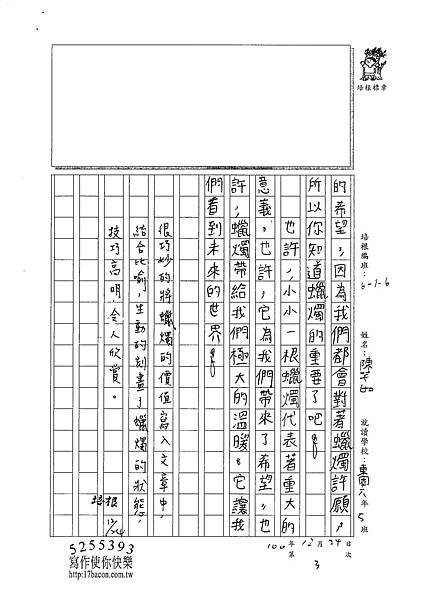 培根標章
培根編班:6-1-6
姓名:陳芊
就讀學校:東園六年5班
100年12月24日
第3次
的希望,因為我們都會對著蠟燭許願,
所以你知道蠟燭的重要了吧!
也許,小小一根蠟燭代表著重大的
意義。也許,它為我們帶來了希望。也
許,蠟燭帶給我們極大的溫暖。它讓我
們看到未來的世界!
很巧妙的將蠟燭的價值寫入文章中,
結合比喻,生動的刻畫了蠟燭的狀態,
技巧高明,令人欣賞。
培根 12/24
5255393
寫作使你快樂
http://17bacon.com.tw